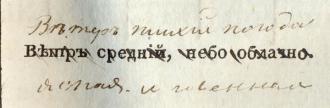 Вѣтеръ тихій погода
Вѣтръ средній, небо облачно
ясная. и